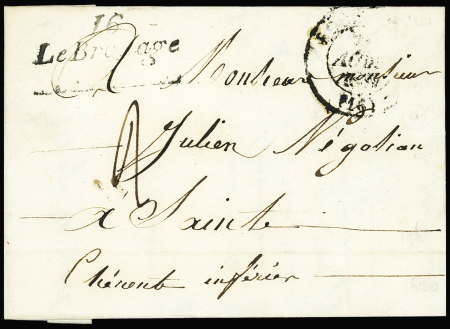 16
Le Brouage
2
Monsieur monsieur
Julien Négotian
à Sainte
Chérente inférieur